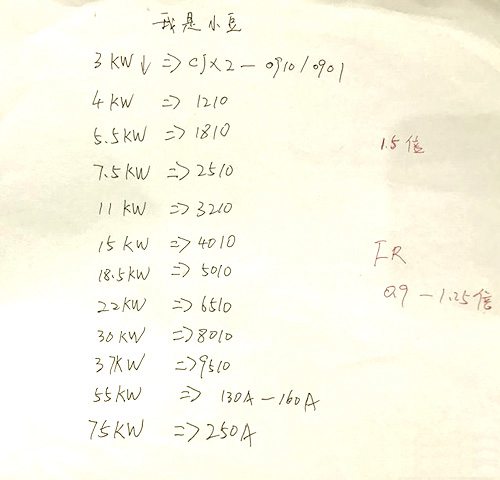 我是小豆
3 KW ↓ => CJX2 - 0910/0901
4 KW => 1210
5.5KW => 1810
1.5倍
7.5KW => 2510
11 KW => 3210
15 KW => 4010
FR
18.5KW => 5010
0.9 - 1.25倍
22KW => 6510
30 KW => 8010
37KW => 9510
55KW => 130A - 160A
75KW => 250A